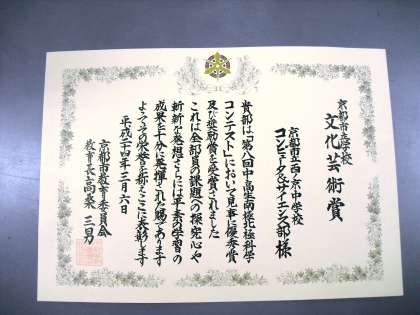 京都市立学校
文化芸術賞
京都市立西ノ京中学校
コンピュータ&サイエンス部 様
貴部は「第八回中高生南極北極科学
コンテスト」において見事に優秀賞
及び奨励賞を受賞されました
これは全部員の課題への探究心や
斬新な発想さらには平素の学習の
成果を十分に発揮された賜であります
よってその栄誉を称えここに表彰します
平成二十四年三月六日
京都市教育委員会
教育長 高桑三男